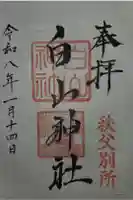 奉拝
秩父別所
白山神社
令和八年一月十四日